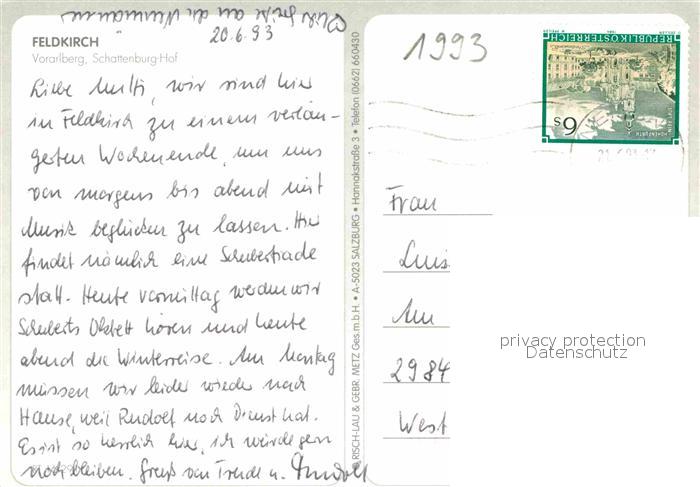 20.6.93
FELDKIRCH
Vorarlberg, Schattenburg-Hof
Liebe wir sind hier
in Feldkirch zu einem verlän-
gerten Wochenende, um uns
von morgens bis abend mit
Musik beglücken zu lassen. Hier
findet nämlich eine Schubertiade
statt. Heute vormittag werden wir
Schuberts Oktett hören und heute
abend die Winterreise. Am Montag
müssen wir leider wieder nach
Hause, weil Rudolf noch Dienst hat.
Es ist so herrlich hier, ich würde gern
noch bleiben. Gruß von Trude u. Rudolf
RISCH-LAU & GEBR. METZ Ges.m.b.H. • A-5023 SALZBURG • Hannakstraße 3 • Telefon (0662) 660430
1993
REPUBLIK ÖSTERREICH
S 6
Frau
Luis
Am
2984
West
privacy protection
Datenschutz